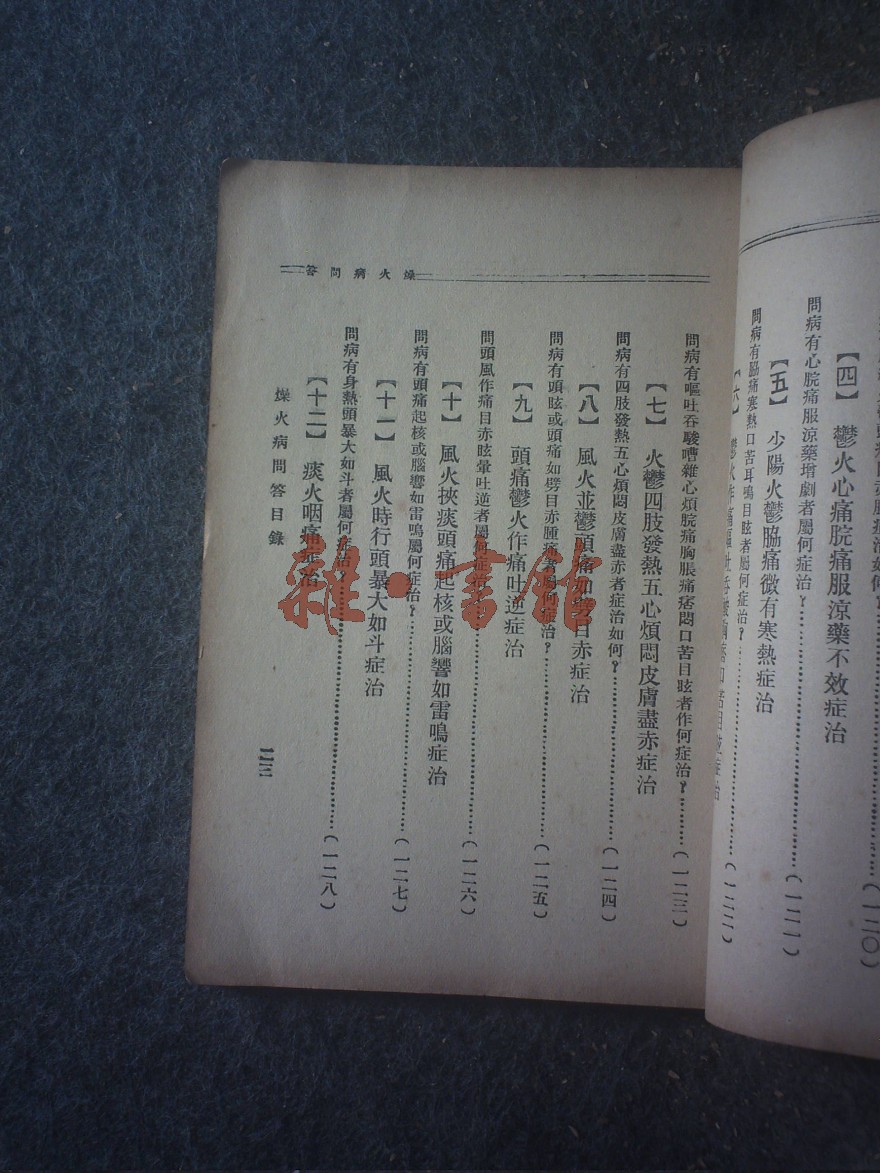 （一二〇）
【四】 鬱火心痛脘痛服涼藥不效症治
問病有心脘痛服涼藥增劇者屬何症治？……（一二一）
【五】 少陽火鬱脇痛微有寒熱症治
問病有脇痛寒熱口苦耳鳴目眩者屬何症治？……（一二二）
燥火病問答
問病有嘔吐吞酸嘈雜心煩脘痛胸脹痛痞悶口苦目眩者作何症治？……（一二三）
【七】 火鬱四肢發熱五心煩悶皮膚盡赤症治
問病有四肢發熱五心煩悶皮膚盡赤者症治如何？……（一二四）
【八】 風火並鬱頭痛如劈目赤症治
問病有頭眩或頭痛如劈目赤腫痛者屬何症治？……（一二五）
【九】 頭痛鬱火作痛吐逆症治
問頭風作痛目赤眩暈吐逆者屬何症治？……（一二六）
【十】 風火挾痰頭痛起核或腦響如雷鳴症治
問病有頭痛起核或腦響如雷鳴屬何症治？……（一二七）
【十一】 風火時行頭暴大如斗症治
問病有身熱頭暴大如斗者屬何症治？……（一二八）
【十二】 痰火咽痛症治
燥火病問答目錄
雜·書館